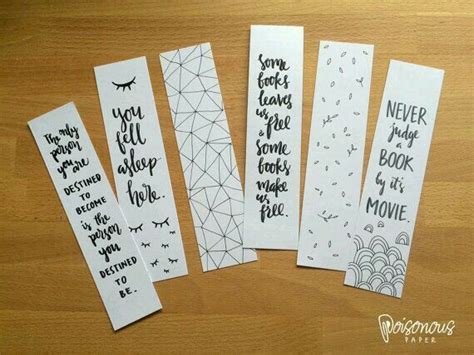 The only
person
you are
DESTINED
TO BECOME
is the
person
you
DESTINED
TO BE.
you
fell
asleep
here.
some
books
leaves
us
free
&
some
books
make
us
free.
NEVER
judge
a
BOOK
by it's
MOVIE.
Poisonous
PAPER